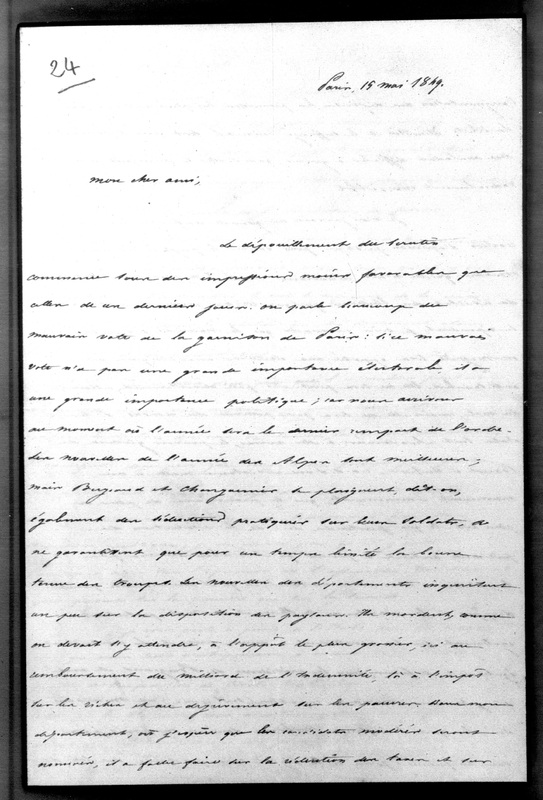 24
Paris, 15 mai 1849.
mon cher ami,
Le dépouillement du scrutin
commence sous des impressions moins favorables que
celles de ces derniers jours. on parle beaucoup du
mauvais vote de la garnison de Paris : si ce mauvais
vote n'a pas une grande importance électorale, il a
une grande importance politique ; car nous arrivons
au moment où l'armée sera le dernier rempart de l'ordre.
Les nouvelles de l'armée des Alpes sont meilleures ;
mais Bugeaud et Changarnier se plaignent, dit-on,
également des séductions pratiquées sur leurs soldats, &
ne garantissent que pour un temps limité la bonne
tenue des troupes. Les nouvelles des départements inquiètent
un peu sur la disposition des paysans. Ils mordent, comme
on devait s'y attendre, à l'appât le plus grossier, ici au
remboursement du milliard de l'Indemnité, là à l'impôt
sur les riches et au dégrèvement sur les pauvres. Dans mon
département, où j'espère que les candidats modérés seront
nommés, il a fallu faire sur la réduction des taxes et sur